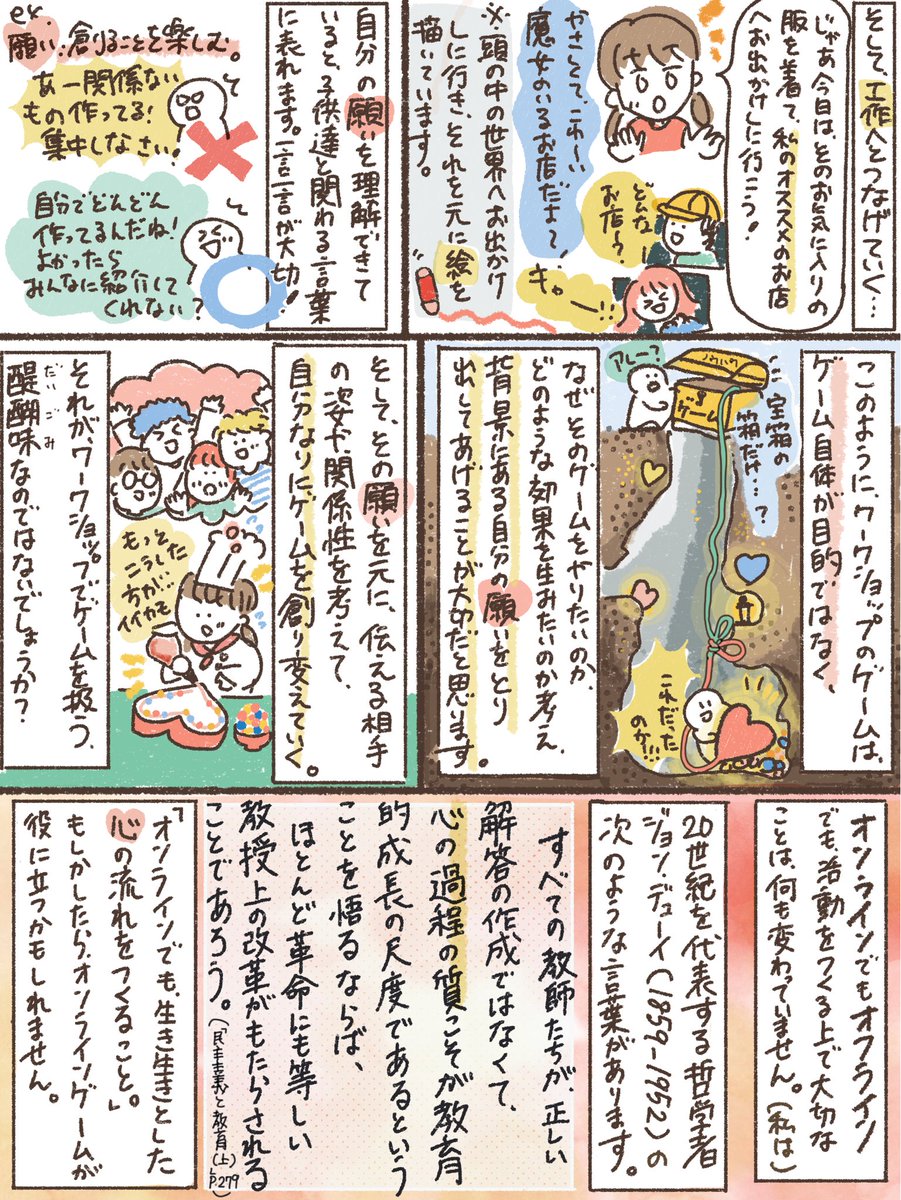 そして、工作へとつなげていく…
じゃあ今日は、そのお気に入りの
服を着て、私のオススメのお店
へお出かけしに行こう！
やさしくて、こわーい
魔女のいるお店だよ〜
どんな
お店？
キャー!!
※頭の中の世界へお出かけ
しに行き、それを元に絵を
描いています。
自分の願いを理解できて
いると、子供達と関わる言葉
に表れます。一言一言が大切！
ex.
願い：創ることを楽しむ。
あー関係ない
もの作ってる！
集中しなさい！
自分でどんどん
作ってるんだね！
よかったら
みんなに紹介して
くれない？
このように、ワークショップのゲームは、
ゲーム自体が目的ではなく、
ノウハウ
ゲーム
アレー？
宝箱の
箱だけ…？
これだった
のか!!
なぜそのゲームをやりたいのか、
どのような効果を生みたいのか考え、
背景にある自分の願いをとり
出してあげることが大切だと思います。
そして、その願いを元に、伝える相手
の姿や関係性を考えて、
自分なりにゲームを創り変えていく。
もっと
こうした
方が…
イイカモ
それが、ワークショップでゲームを扱う、
醍醐味なのではないでしょうか？
だいごみ
オンラインでもオフライン
でも活動をつくる上で大切な
ことは、何も変わっていません。（私は）
20世紀を代表する哲学者
ジョン・デューイ（1859-1952）の
次のような言葉があります。
すべての教師たちが、正しい
解答の作成ではなくて、
心の過程の質こそが教育
的成長の尺度であるという
ことを悟るならば、
ほとんど革命にも等しい
教授上の改革がもたらされる
ことであろう。（「民主主義と教育（上）」P.279）
「オンラインでも、生き生きとした
心の流れをつくること。」
もしかしたら、オンラインゲームが
役に立つかもしれません。